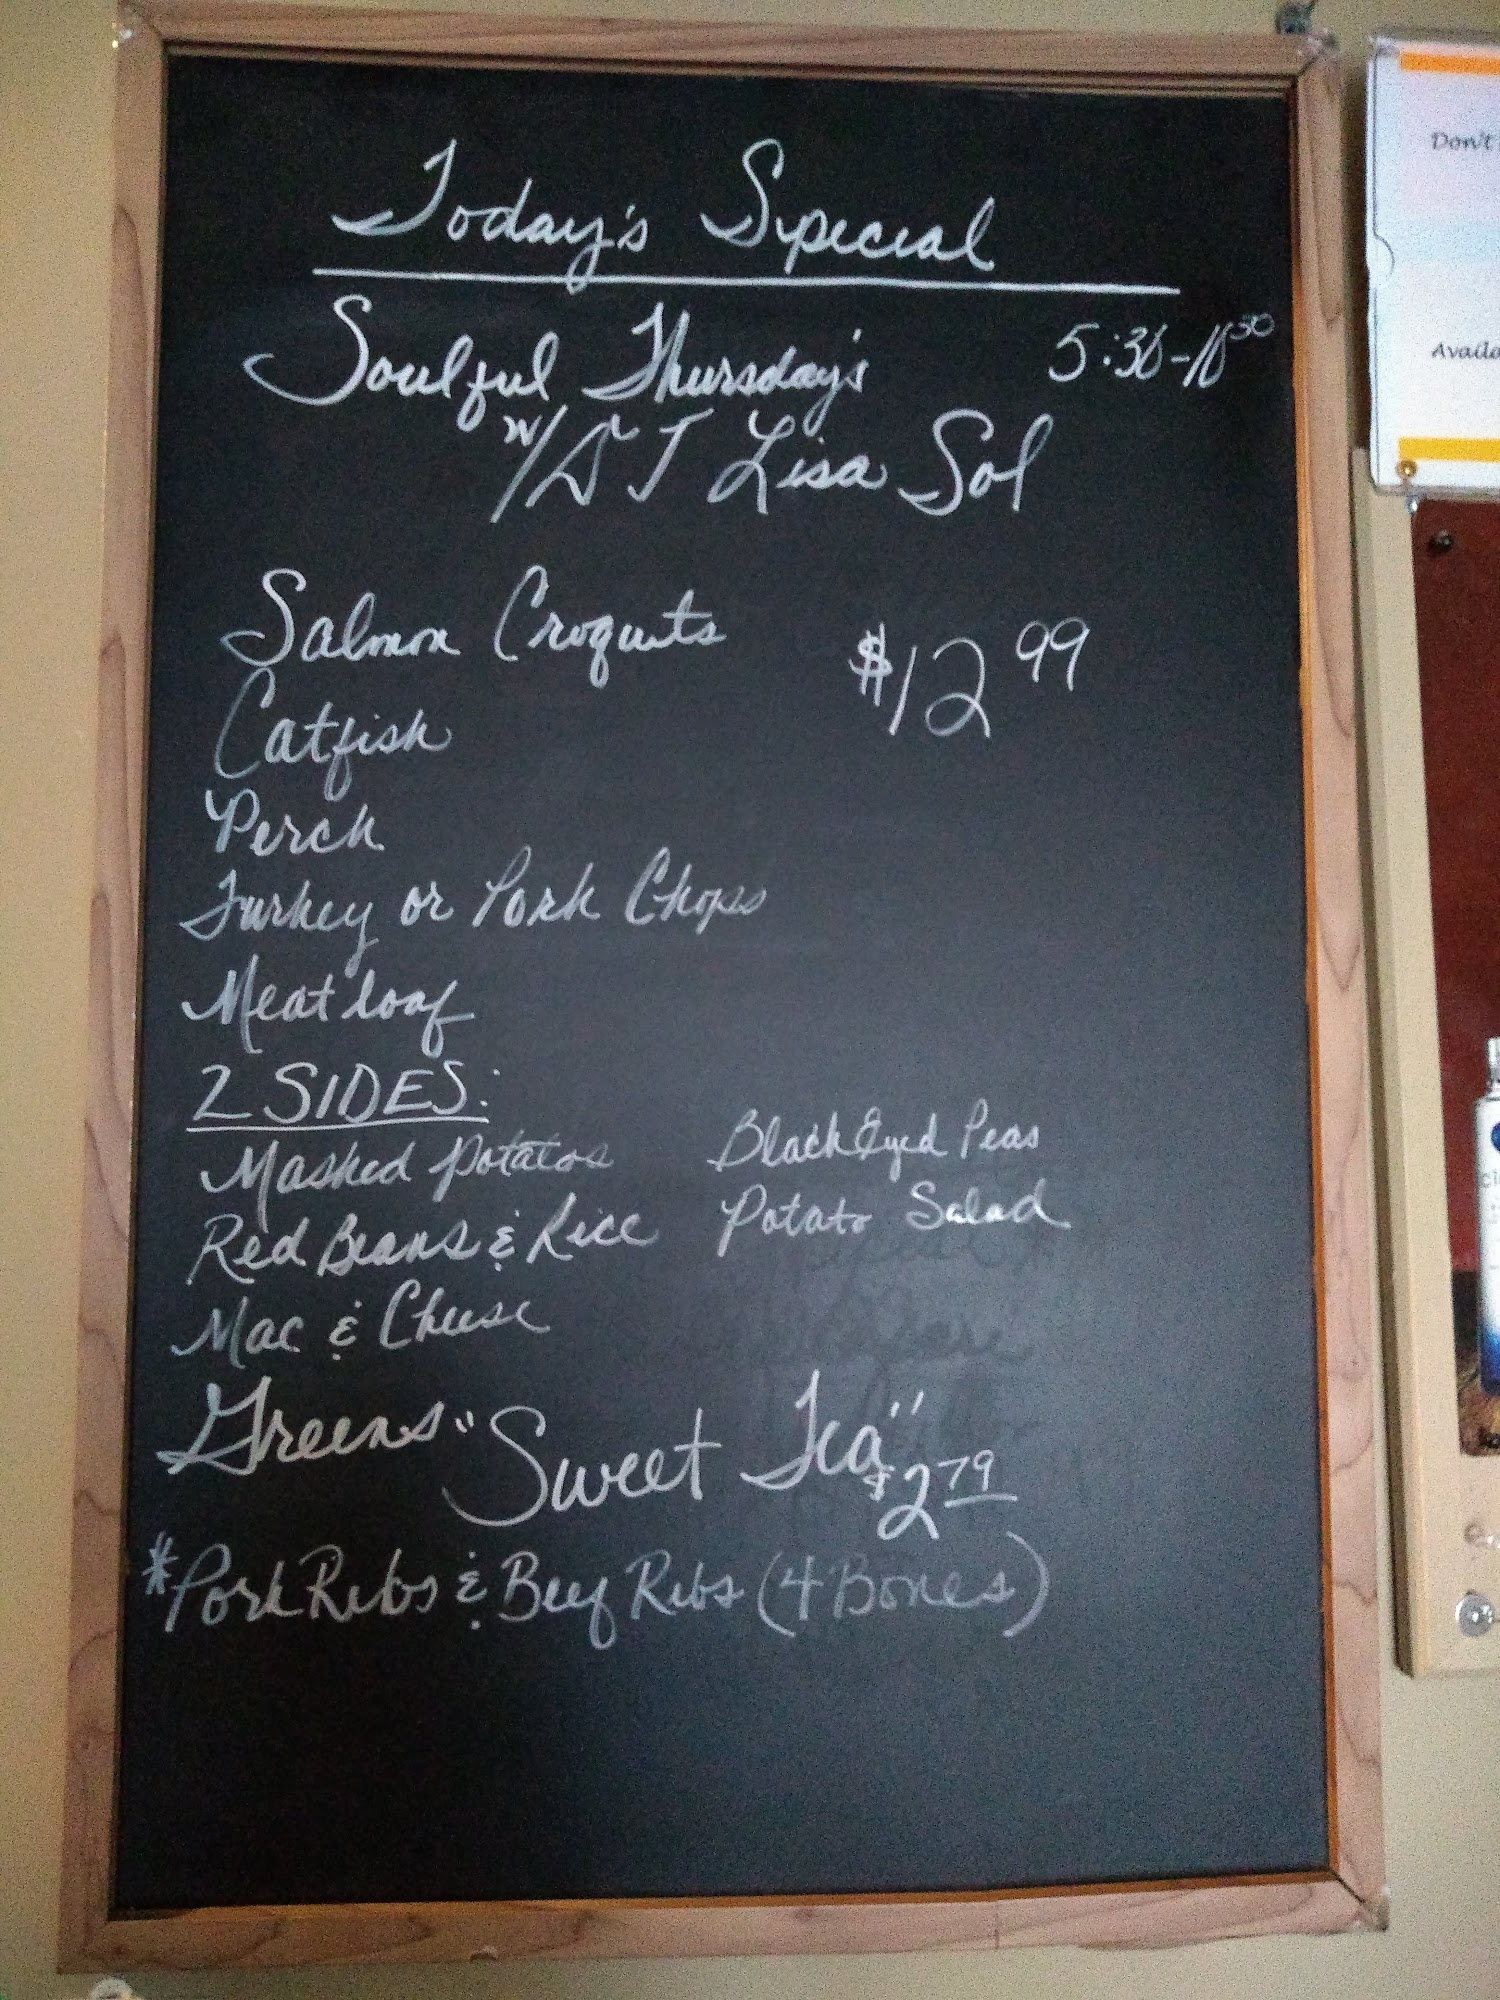 Today's Special
Soulful Thursday's 5:30-10³⁰
w/ A T Lisa Sol
Salmon Croquets $12 99
Catfish
Perch
Turkey or Pork Chops
Meat loaf
2 SIDES:
Mashed Potatos Black Eyed Peas
Red Beans & Rice Potato Salad
Mac & Cheese
Greens "Sweet Tea" $2 79
*Pork Ribs & Beef Ribs (4 Bones)
Don't
Availa